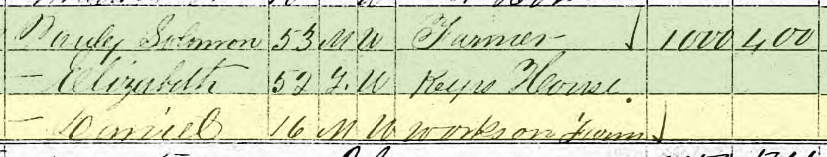 Solomon 53 M W Farmer 1000 400
— Elizabeth 52 F. W Keeps House
— Daniel 16 M W works on Farm